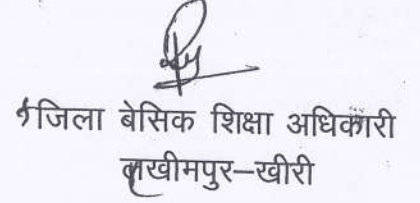 जिला बेसिक शिक्षा अधिकारी
लखीमपुर–खीरी